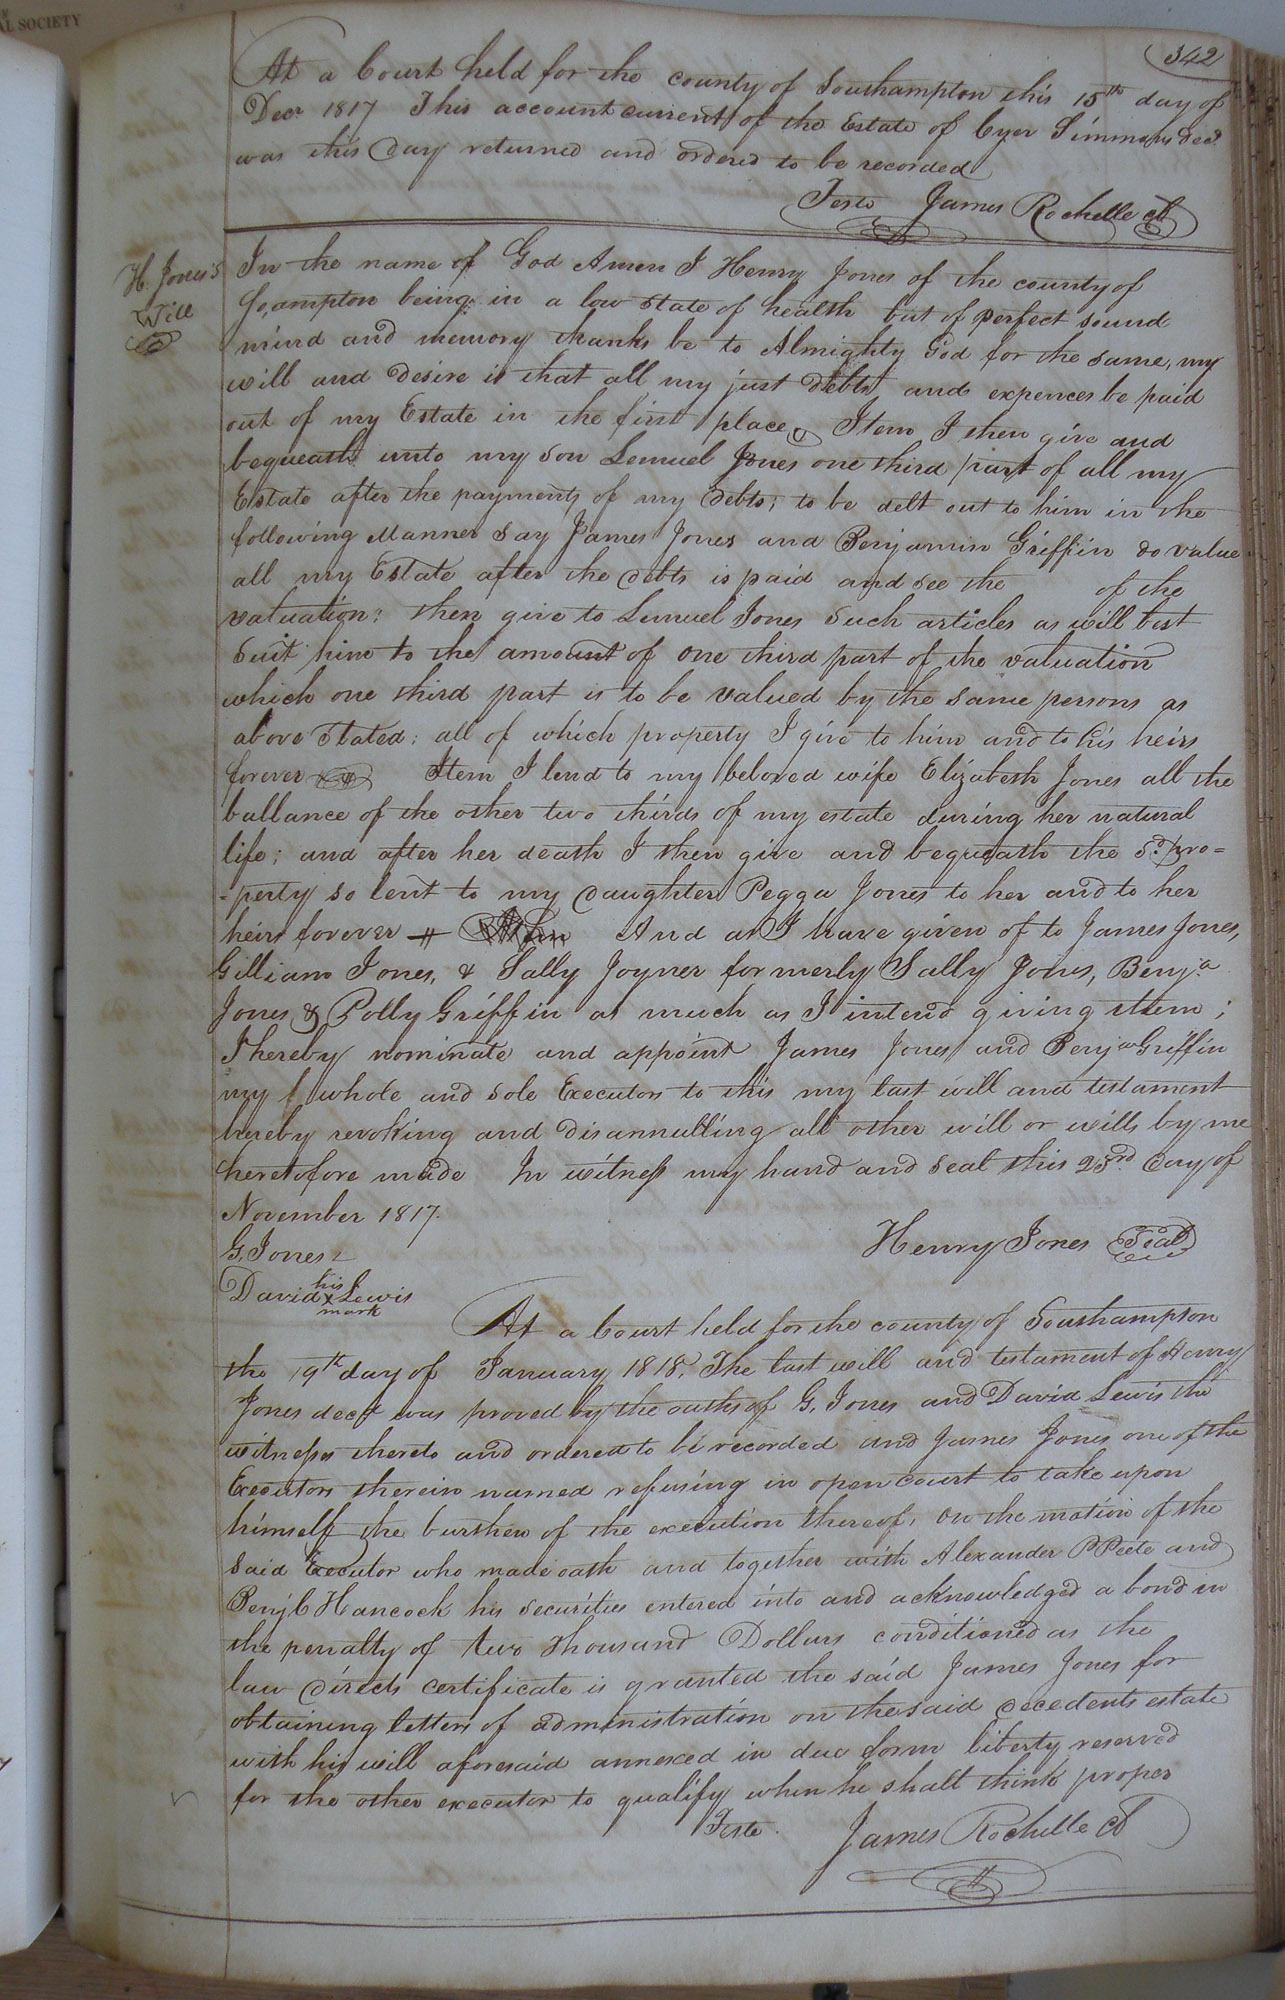 AL SOCIETY
342
At a Court held for the county of Southampton this 15th day of
Decr 1817 This account current of the Estate of Cyer Simmons decd.
was this day returned and ordered to be recorded
Teste James Rochelle
H. Jones's
Will
In the name of God Amen I Henry Jones of the county of
So,ampton being in a low state of health but of perfect sound
mind and memory thanks be to Almighty God for the same, my
will and desire is that all my just debts and expences be paid
out of my Estate in the first place Item I then give and
bequeath unto my son Lemuel Jones one third part of all my
Estate after the payments of my debts; to be delt out to him in the
following Manner Say James Jones and Benjamin Griffin do value
all my Estate after the debts is paid and see the of the
valuation: then give to Lemuel Jones Such articles as will best
Suit him to the amount of one third part of the valuation
which one third part is to be valued by the same persons as
above Stated: all of which property I give to him and to his heirs
forever Item I lend to my beloved wife Elizabeth Jones all the
ballance of the other two thirds of my estate during her natural
life; and after her death I then give and bequeath the sd. pro=
-perty so lent to my daughter Pegga Jones to her and to her
heirs forever And as I have given of to James Jones,
Gilliam Jones, & Sally Joyner formerly Sally Jones, Benja
Jones & Polly Griffin as much as I intend giving them;
I hereby nominate and appoint James Jones and Benja Griffin
my whole and sole Executors to this my last will and testament
hereby revoking and disannulling all other will or wills by me
heretofore made In witness my hand and seal this 23rd day of
November 1817.
G. Jones
Henry Jones Seal
David his x mark Lewis
At a Court held for the county of Southampton
the 19th day of January 1818. The last will and testament of Henry
Jones decd was proved by the oaths of G. Jones and David Lewis the
witnesses thereto and ordered to be recorded and James Jones one of the
Executors therein named refusing in open court to take upon
himself the burthen of the execution thereof, on the motion of the
said Executor who made oath and together with Alexander P Peete and
Benj C Hancock his securities entered into and acknowledged a bond in
the penalty of two thousand Dollars conditioned as the
law directs certificate is granted the said James Jones for
obtaining letters of administration on the said decedents estate
with his will aforesaid annexed in due form liberty reserved
for the other executor to qualify when he shall think proper
Teste. James Rochelle